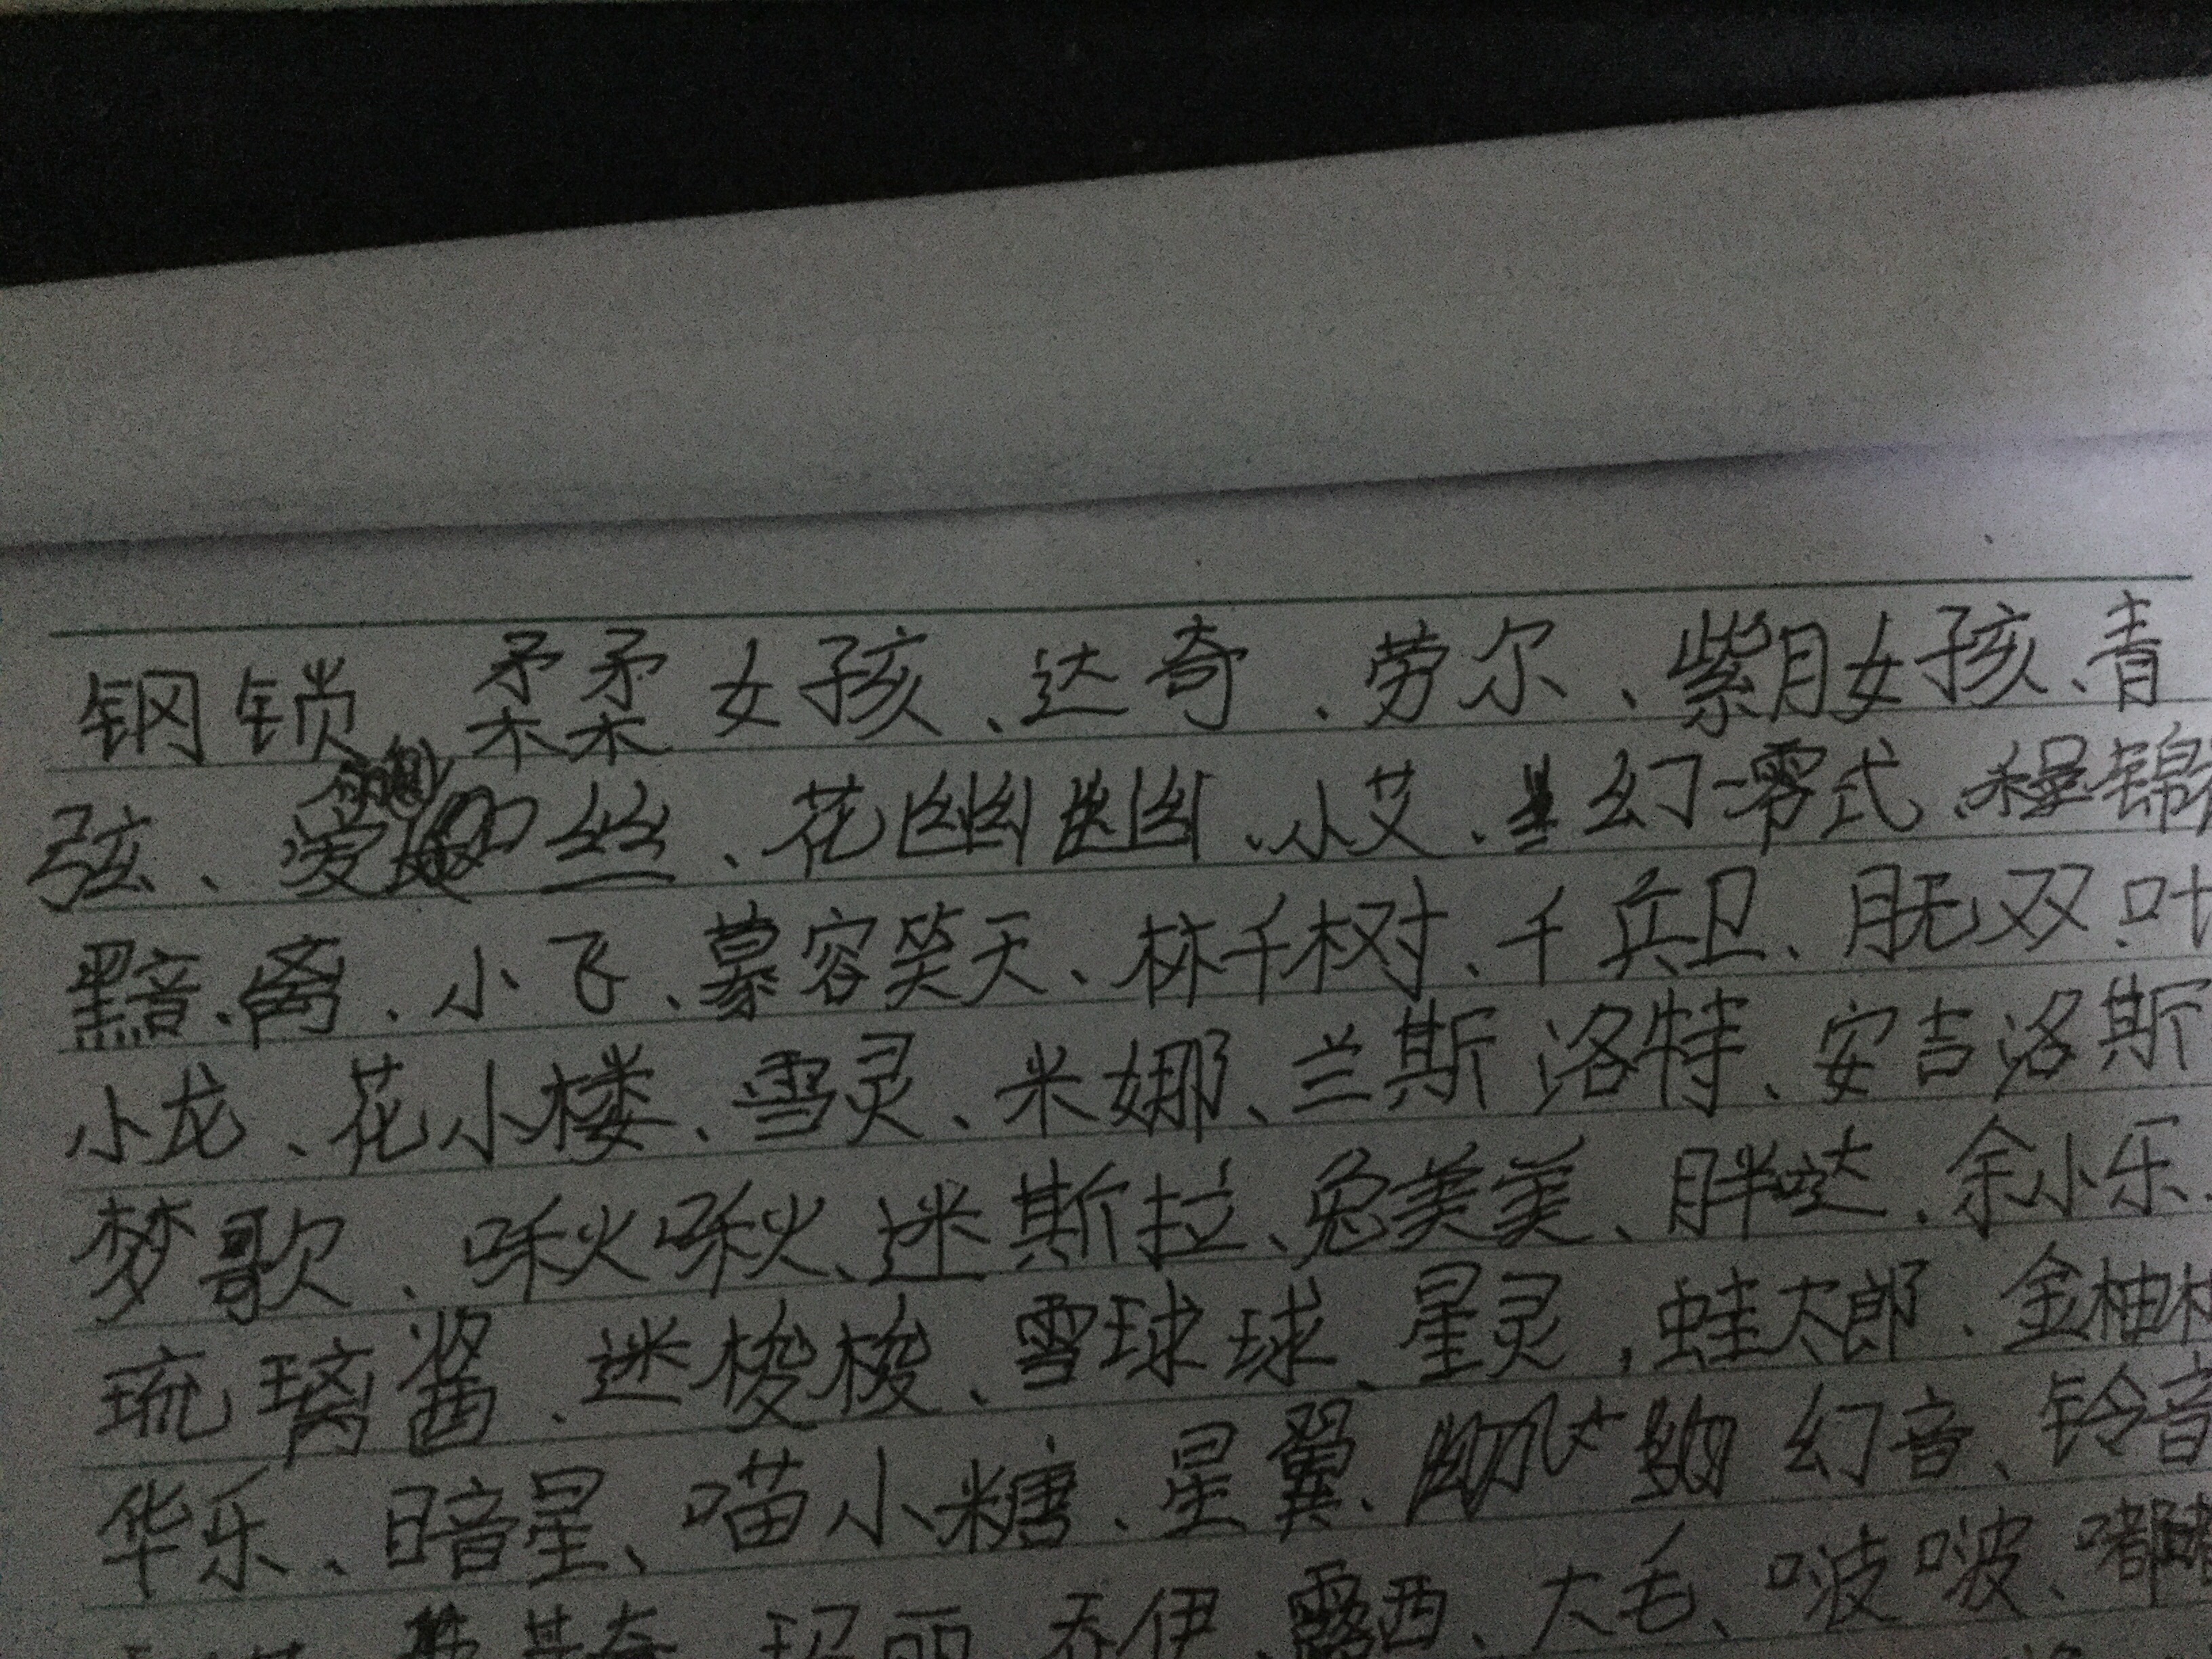 钢锁、柔柔女孩、达奇、劳尔、紫月女孩、青
弦、爱丝、花幽幽、小艾、幻零式、程锦
黯、离、小飞、慕容笑天、林千树、千兵卫、无双、叶
小龙、花小楼、雪灵、米娜、兰斯洛特、安吉洛斯
梦歌、啾啾、迷斯拉、兔美美、胖哒、余小乐
琉璃酱、迷梭梭、雪球球、星灵,蛙太郎、金柚
华乐、暗星、喵小糖、星翼、幻音、铃音
玛丽、乔伊、露西、大毛、啵啵、嘟